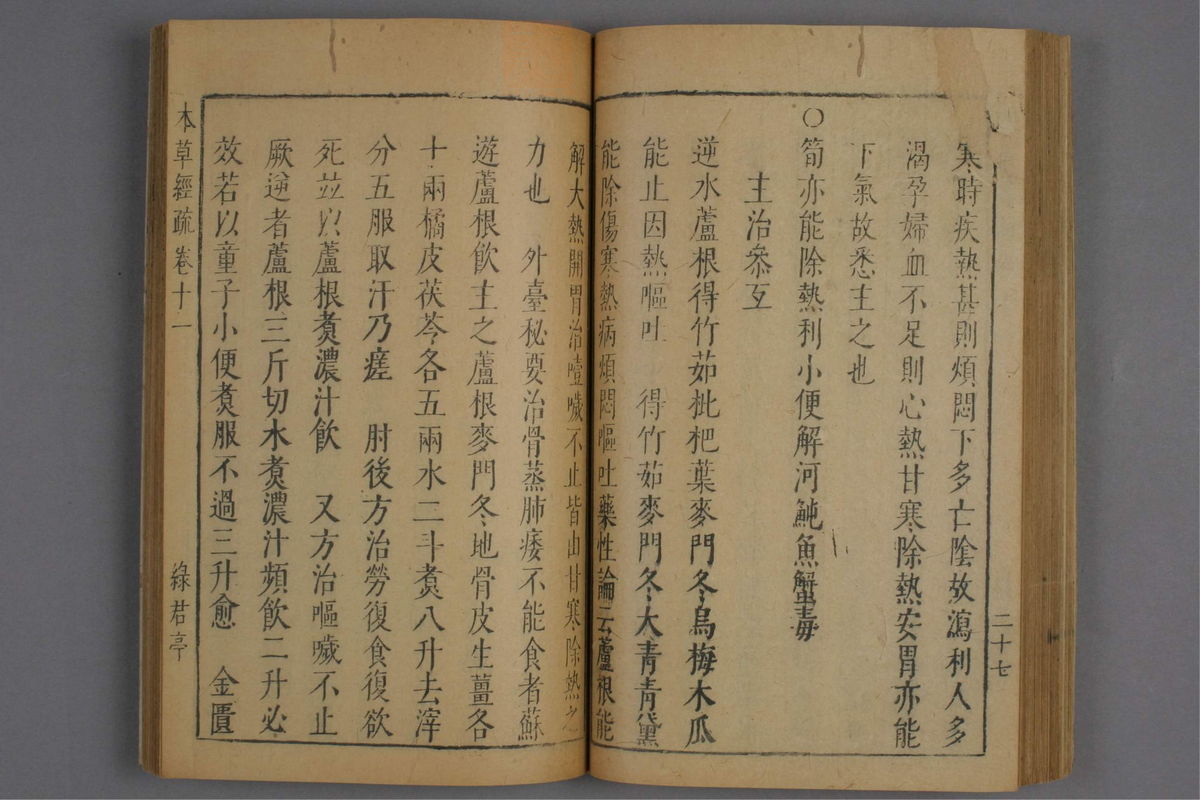 寒時疾熱甚則煩悶下多亡陰故瀉利人多
渴孕婦血不足則心熱甘寒除熱安胃亦能
下氣故悉主之也
○筍亦能除熱利小便解河魨魚蟹毒
主治叅互
逆水蘆根得竹茹枇杷葉麥門冬烏梅木瓜
能止因熱嘔吐 得竹茹麥門冬大青青黛
能除傷寒熱病煩悶嘔吐藥性論云蘆根能
二十七
解大熱開胃治噎噦不止皆由甘寒除熱之
力也 外臺秘要治骨蒸肺痿不能食者蘇
遊蘆根飲主之蘆根麥門冬地骨皮生薑各
十兩橘皮茯苓各五兩水二斗煑八升去滓
分五服取汗乃瘥 肘後方治勞復食復欲
死並以蘆根煑濃汁飲 又方治嘔噦不止
厥逆者蘆根三斤切水煑濃汁頻飲二升必
效若以童子小便煑服不過三升愈 金匱
本草經疏 卷十一
綠君亭